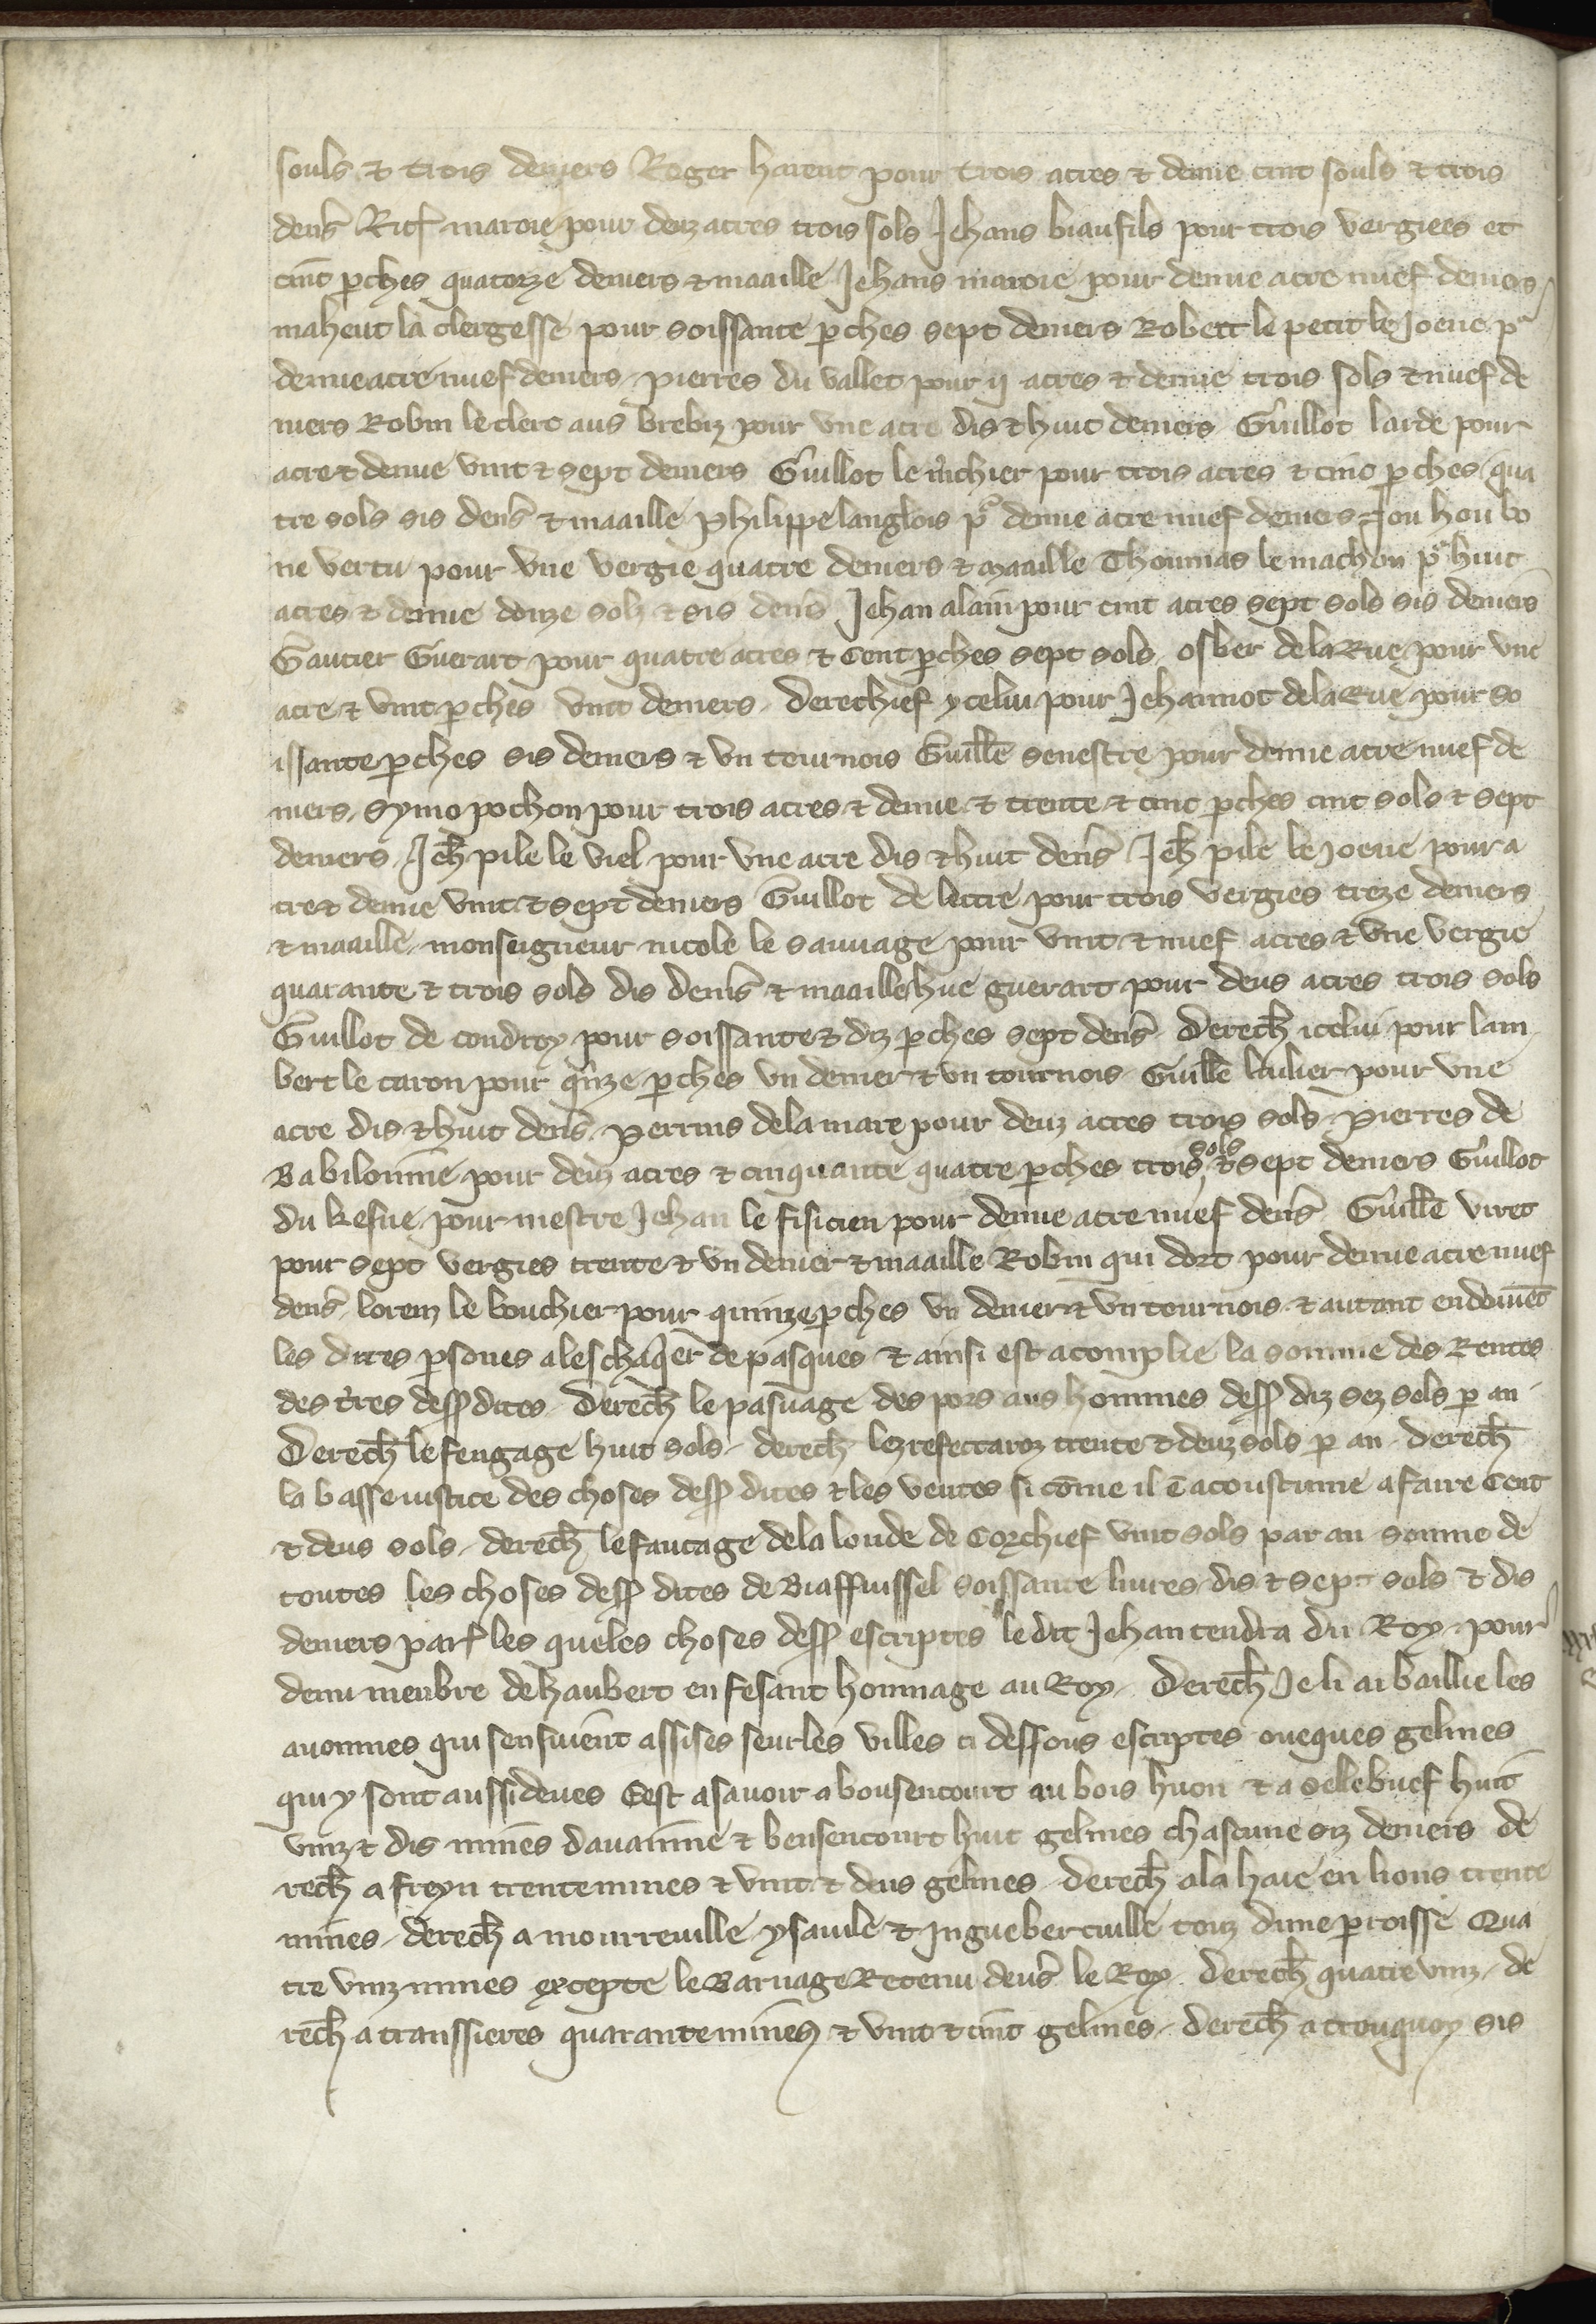 souls & trois deniers Roger harent pour trois acres & demie cinc souls & trois
den̄s Ric̄ maroie pour deuz acres trois sols Jehans biaufils pour trois vergiees et
cinc p̱ches quatorze deniers & maaille Jehans maroie pour demie acre nuef deniers
maheut la clergesse pour soissante p̱ches sept deniers Robert le petit le joene pʳ
demie acre nuef deniers pierres du vallet pour ij acres & demie trois sols & nuef de
niers Robin le clerc aus brebiz pour vne acre dis & huit deniers Guillot larde pour
acre & demie vint & sept deniers Guillot le m̄chier pour trois acres & cinc p̱ches qua
tre sols sis den̄s & maaille Philippe langlois pʳ demie acre nuef deniers Jou hou bo
ne vertu pour vne vergie quatre deniers & maaille Thoumas le machon pʳ huit
acres & demie douze solz & sis den̄s Jehan alain pour cinc acres sept sols sis deniers
Gautier Guerart pour quatre acres & cent p̱ches sept sols osber de la Rue pour vne
acre & vint p̱ches vint deniers derechief ycelui pour Jehannot de la Rue pour so
issante p̱ches sis deniers & vn tournois Guill̄e senestre pour demie acre nuef de
niers symo pochon pour trois acres & demie & trente & cinc p̱ches cinc sols & sept
deniers Jeh̄ pile le viel pour vne acre dis & huit den̄s Jeh̄ pile le joene pour a
cre & demie vint & sept deniers Guillot de lettre pour trois vergies treze deniers
& maaille monseigneur nicole le sauuage pour vint & nuef acres & vne vergie
quarante & trois sols dis den̄s & maaille hue guerart pour deus acres trois sols
Guillot de coudroy pour soissante & diz p̱ches sept den̄s derech̄ icelui pour lam
bert le caron pour q̄nze p̱ches vn denier & vn tournois Guill̄e luilier pour vne
acre dis & huit den̄s perrins de la mare pour deuz acres trois sols pierres de
Babilonnie pour deuz acres & cinquante quatre p̱ches trois sols & sept deniers Guillot
du kesne pour mestre Jehan le fisicien pour demie acre nuef den̄s Guill̄e viret
pour sept vergies trente & vn denier & maaille Robin qui dort pour demie acre nuef
den̄s lorenz le bouchier pour quinze p̱ches vn denier & vn tournois & autant en doiuēt
les dites p̱sones a leschaq̄er de pasques & ainsi est acomplie la somme des Rentes
des t̄res dess̄ dites derech̄ le pasnage des pors aus hommes dess̄ diz sez sols p̱ an
Derech̄ le fengage huit sols derech̄ lez refectaroz trente & deuz sols p̱ an derech̄
la basse iustice des choses dess̄ dites & les ventes si cōme il ē acoustume a faire cent
& deus sols derech̄ le fautage de la londe de Corchief vint sols par an somme de
toutes les choses dess̄ dites de Biaffuissel soissante liures dis & sept sols & dis
deniers par̄ les queles choses dess̄ escriptes le dit Jehan tendra du Roy pour
demi menbre de haubert en fesant hommage au Roy Derech̄ Je li ai baillie les
auonnes qui sensiuent assises seur les villes ci dessous escriptes oueques gelines
qui y sont aussi deues Cest asauoir a bousencourt au bois huon & a sellebuef huit
vinz & dis mines dauainne & bensencourt huit gelines chascune siz deniers de
rech̄ a freyn trente mines & vint & deus gelines derech̄ a la haie en lions trente
mines derech̄ a mourreuille ysauile & Jngueberuille touz dune p̱roisse Qua
tre vinz mines excepte le Barnage Retenu deu̅s le Roy derech̄ quatre vinz de
rech̄ a transsieres quarante mines & vint & cinc gelines derech̄ a tronquoy sis